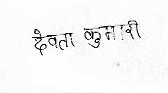 देवता कुमारी